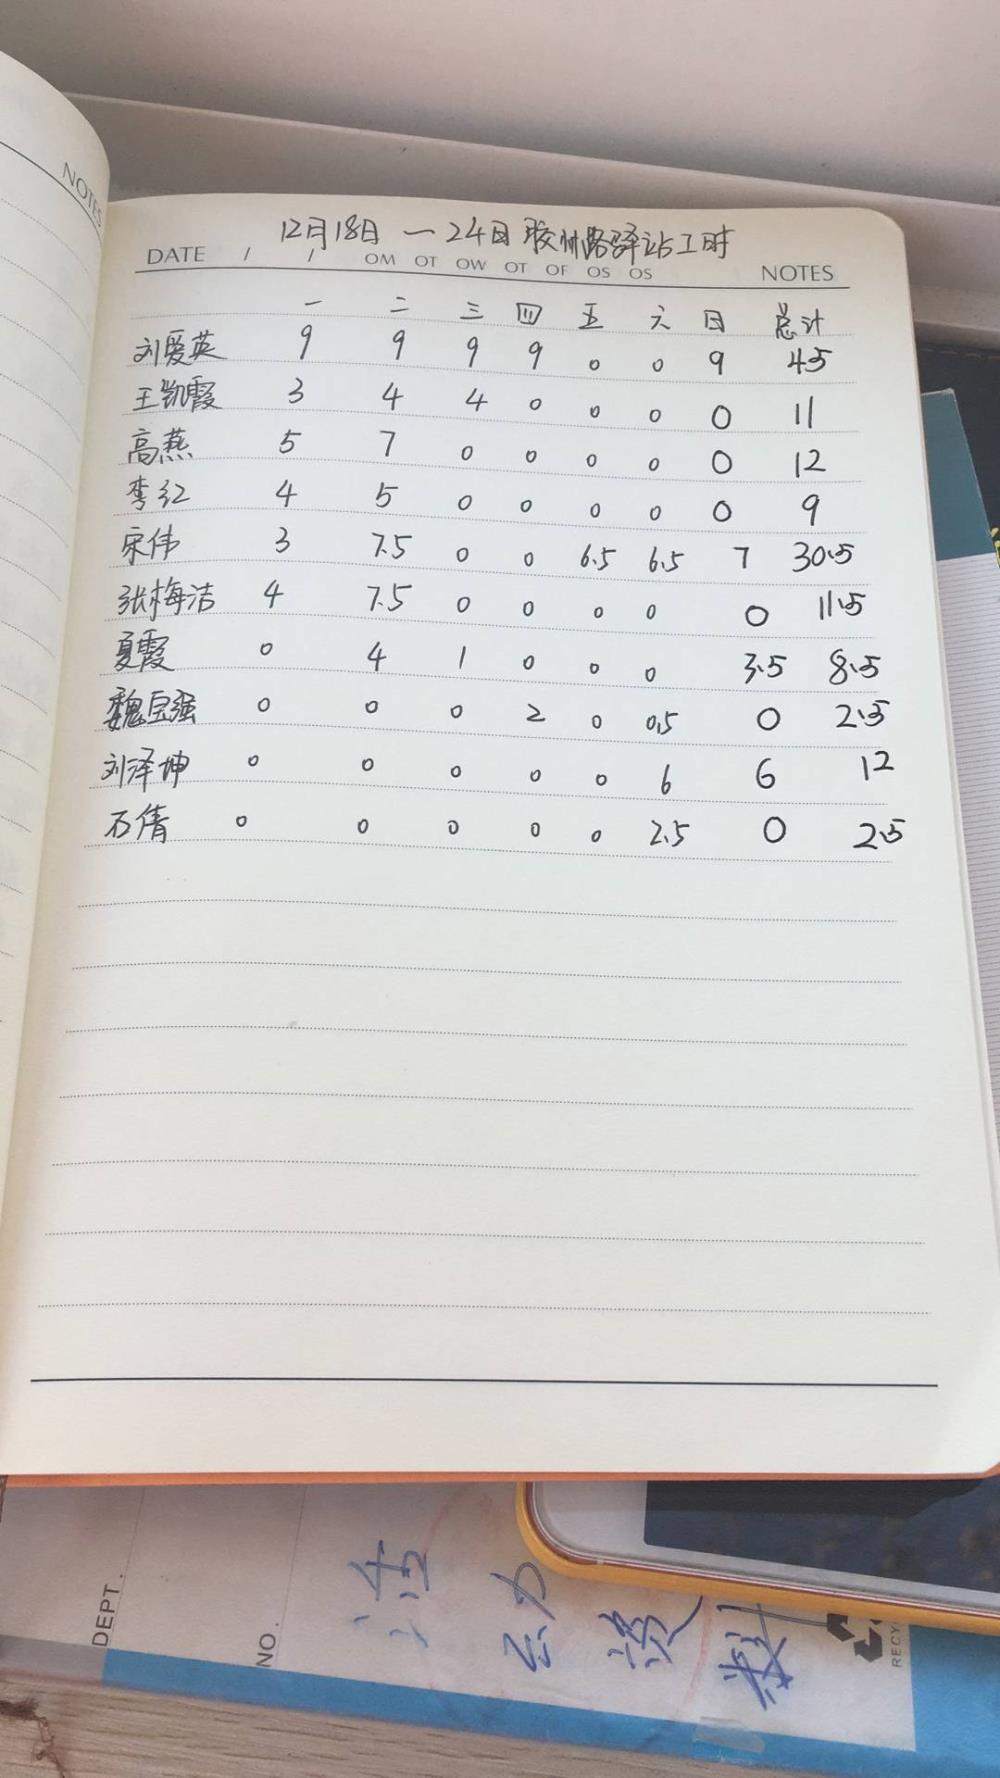 NOTES
12月18日 一 24日胶州路驿站工时
DATE / / OM OT OW OT OF OS OS NOTES
一 二 三 四 五 六 日 总计
刘爱英 9 9 9 9 0 0 9 45
王凯霞 3 4 4 0 0 0 0 11
高燕 5 7 0 0 0 0 0 12
李红 4 5 0 0 0 0 0 9
宋伟 3 7.5 0 0 6.5 6.5 7 30.5
张梅洁 4 7.5 0 0 0 0 0 11.5
夏霞 0 4 1 0 0 0 3.5 8.5
魏宝强 0 0 0 2 0 0.5 0 2.5
刘泽坤 0 0 0 0 0 6 6 12
石倩 0 0 0 0 0 2.5 0 2.5
DEPT.
NO.
RECY